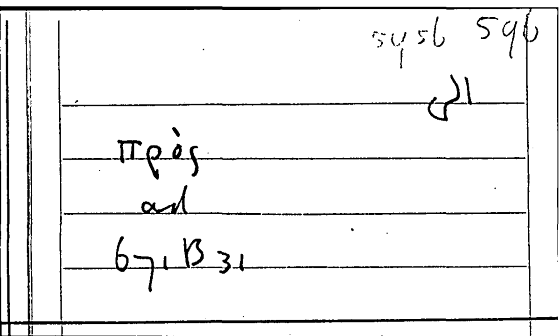 5956 596
الى
πρὸς
ad
671 B 31